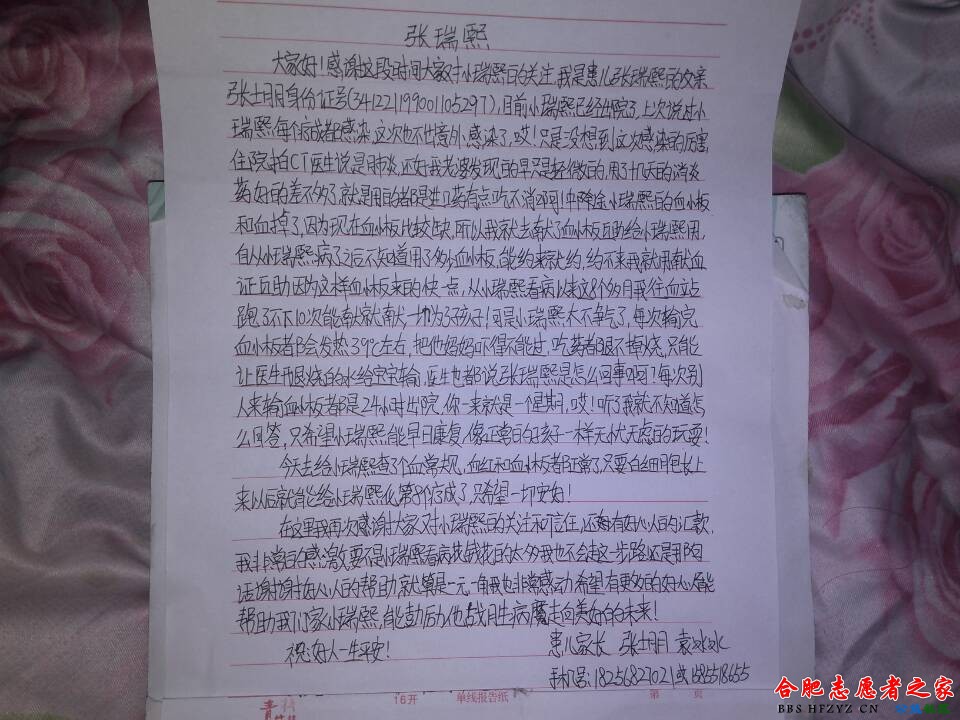 张瑞熙
大家好!感谢这段时间大家对小瑞熙的关注.我是患儿张瑞熙的父亲
张士明身份证号(341221199001105297),目前小瑞熙已经出院了,上次说过小
瑞熙每个疗成都感染,这次也不出意外感染了,哎!只是没想到这次感染的厉害
住院拍CT医生说是肺炎,还好我光发现的早只是轻微的,用了几天的消炎
药好的差不多了就是用的都是进口药有点吃不消啊!中降途小瑞熙的血小板
和血掉了,因为现在血小板比较缺,所以我就去献了血小板互助给小瑞熙用,
自从小瑞熙病了之后不知道用了多少血小板,能约来就约,约不来我就用献血
证互助因为这样血小板来的快一点,从小瑞熙看病以来这8个多月我往血站
跑了不下10次能献就献,一切为了孩子!可是小瑞熙太不争气了,每次输完
血小板都会发热39℃左右,把他妈妈吓得不能过,吃药都退不掉烧,只能
让医生用退烧的水给宝宝输,医生也都说张瑞熙是怎么回事啊?每次别
人来输血小板都是24小时出院,你一来就是一个星期,哎!听了我就不知道怎
么回答,只希望小瑞熙能早日康复,像正常的孩子一样无忧无虑的玩耍!
今天去给小瑞熙查了个血常规,血红和血小板都正常了,只要白细胞长上
来以后就能给小瑞熙化第8个疗成了,只希望一切安好!
在这里我再次感谢大家对小瑞熙的关注和信任,还有好心人的汇款,
我非常的感激,要不是小瑞熙看病找钱花的太多我也不会走这一步路还是那句
话谢谢好心人的帮助就算是一元一角我也非常感动希望有更好的好心人能
帮助我们家小瑞熙,能鼓励他战胜病魔走向美好的未来!
祝:好人一生平安! 患儿家长 张士明 袁冰冰
手机号:18256827021或1585518655
青 16开 单线报告纸 第 页
合肥志愿者之家
BBS HFZYZ CN